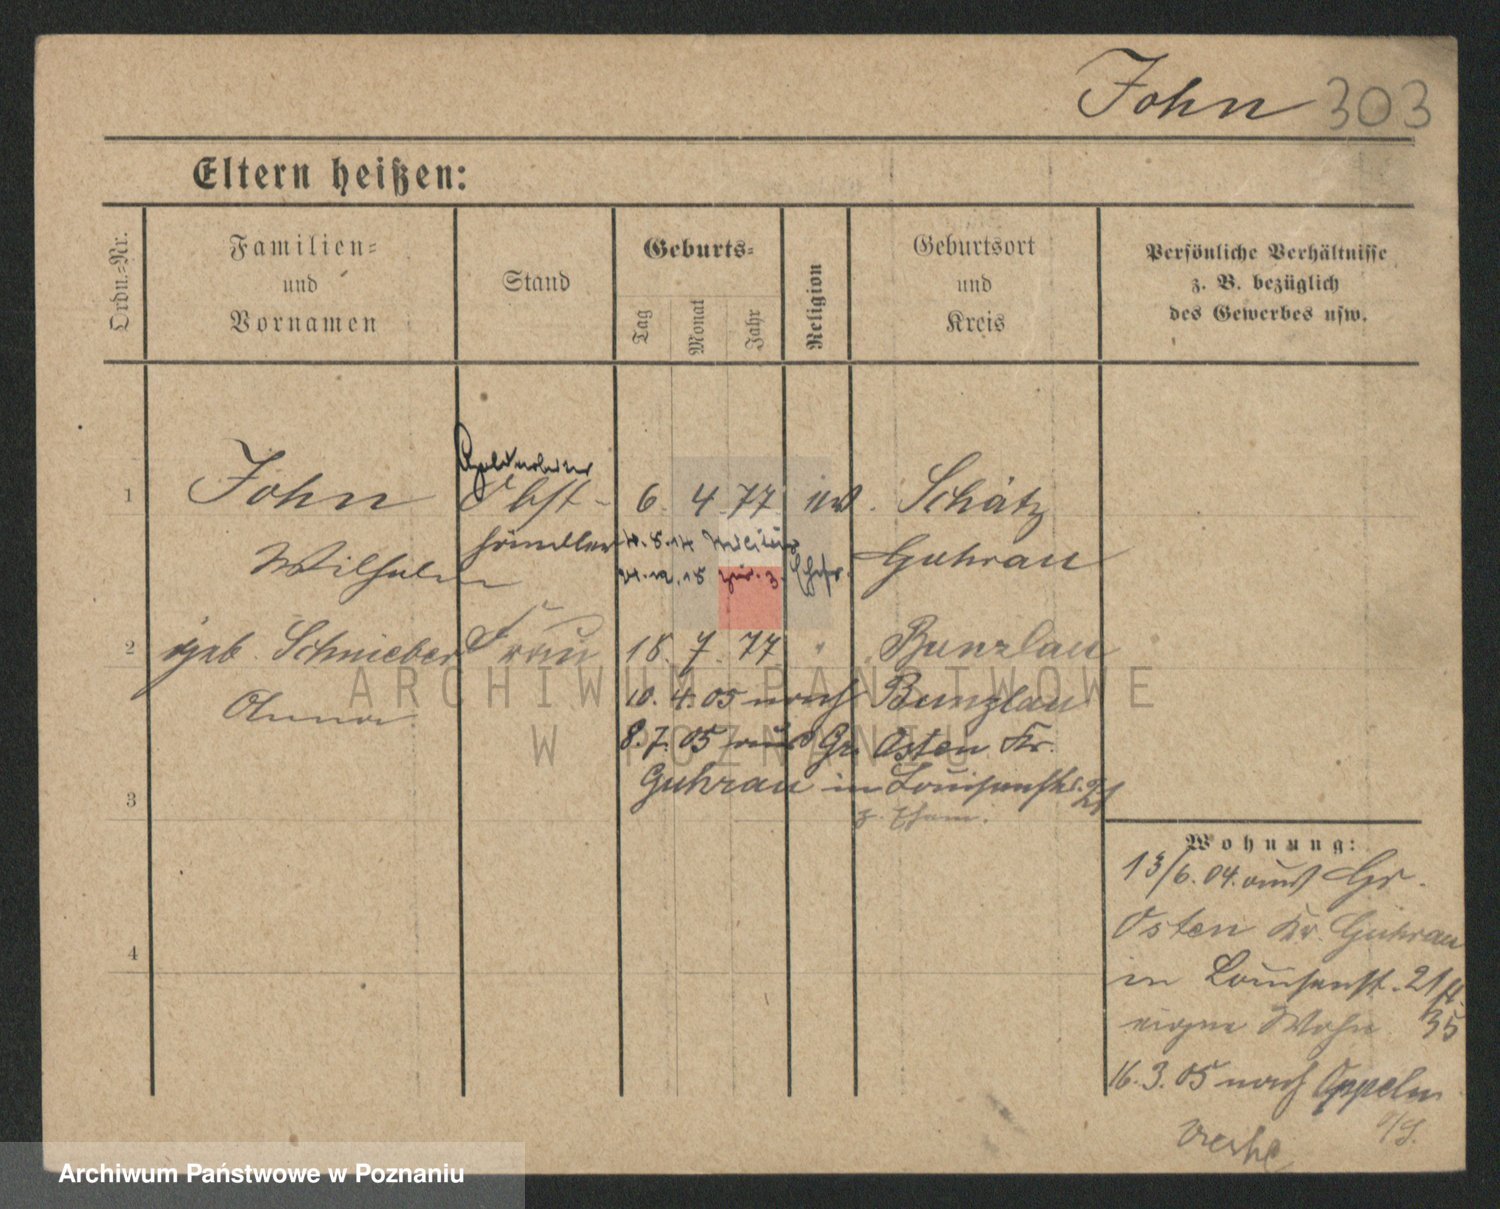 John 303
Eltern heißen:
Ordn.-Nr.
Familien-
und
Vornamen
Stand
Geburts-
Tag
Monat
Jahr
Religion
Geburtsort
und
Kreis
Persönliche Verhältnisse
z. B. bezüglich
des Gewerbes usw.
1 John Obst- 6. 4. 77 ev. Schätz
Wilhelm händler Guhrau
10.8.14 Militär
zur. z. Ehefr.
2 geb. Schnieber Frau 18. 7. 77 " Bunzlau
Anna 10. 4. 05 nach Bunzlau
8. 7. 05 aus Gr. Osten Kr.
3 Guhrau in Louisenstr. 21
4
Wohnung:
13/6. 04. aus Gr.
Osten Kr. Guhrau
in Louisenst. 21
eigne Wohn. 35
16. 3. 05 nach Oppeln
ARCHIWUM PAŃSTWOWE
W POZNANIU
Archiwum Państwowe w Poznaniu